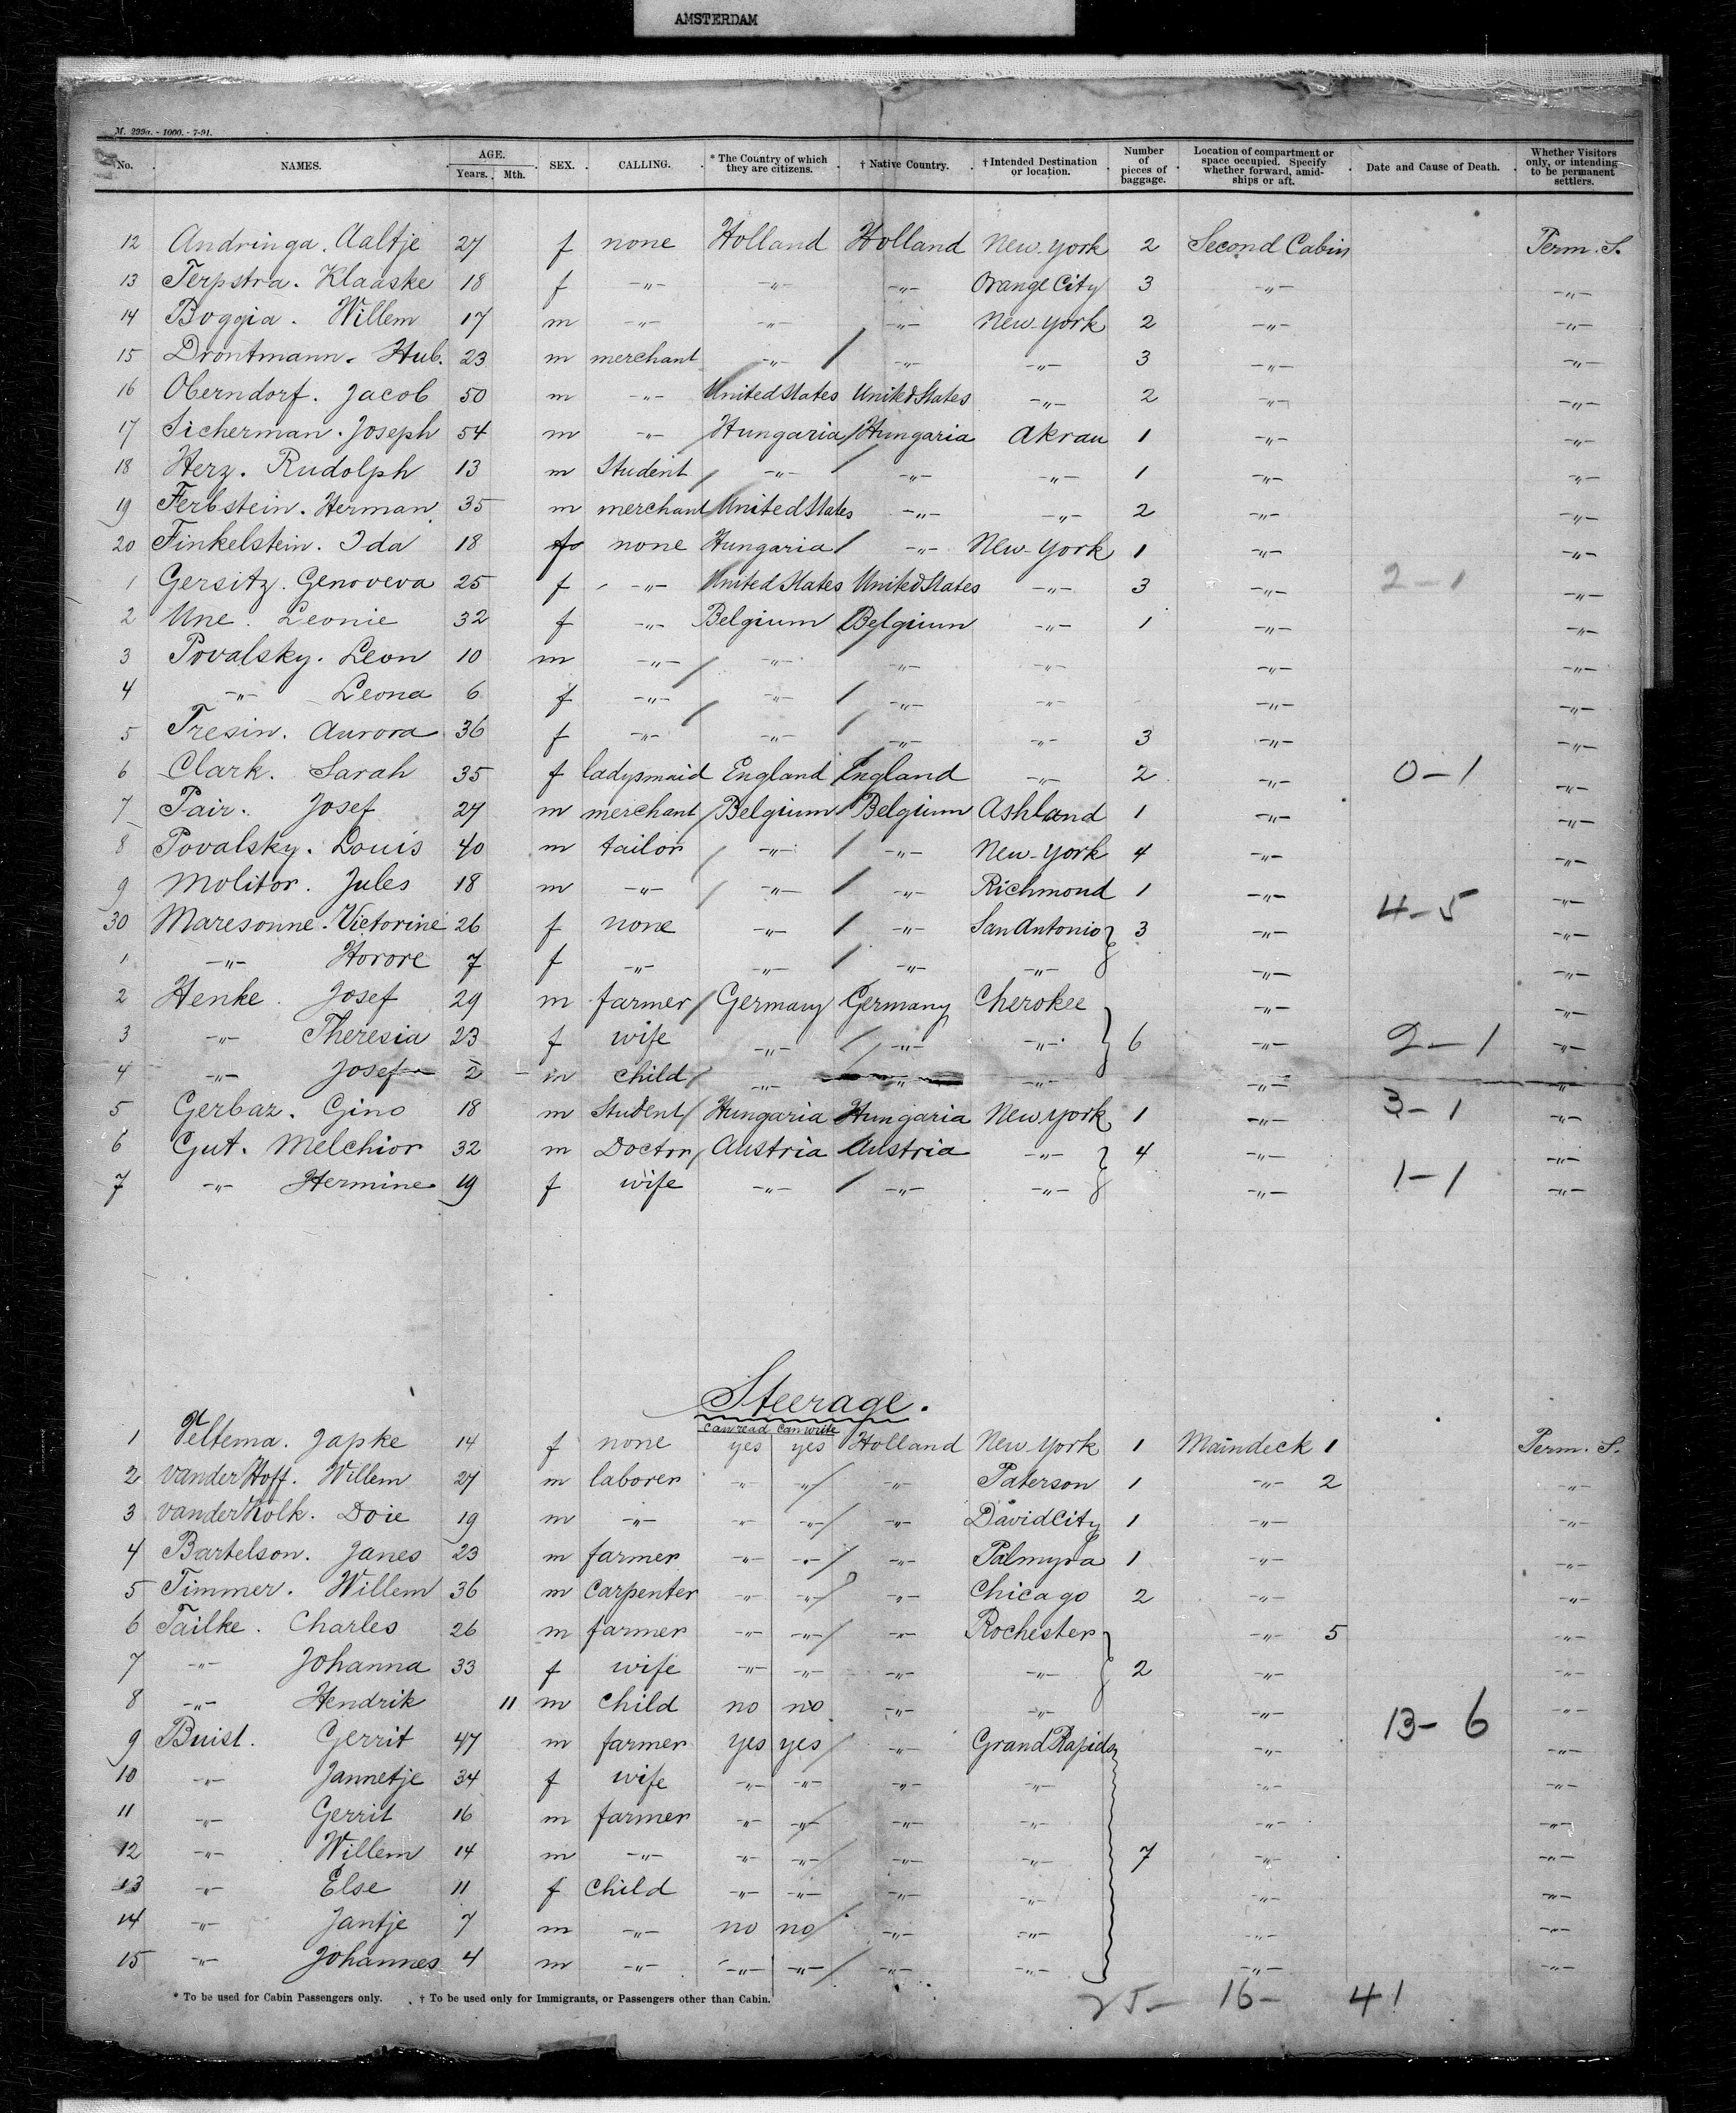 AMSTERDAM
M. 299a. - 1000. - 7-91.
No. NAMES. AGE. Years. Mth. SEX. CALLING. * The Country of which they are citizens. † Native Country. † Intended Destination or location. Number of pieces of baggage. Location of compartment or space occupied. Specify whether forward, amidships or aft. Date and Cause of Death. Whether Visitors only, or intending to be permanent settlers.
12 Andringa. Aaltje 27 f none Holland Holland New-York 2 Second Cabin Perm. S.
13 Terpstra. Klaaske 18 f -"- -"- -"- Orange City 3 -"- -"-
14 Boggia. Willem 17 m -"- -"- -"- New-York 2 -"- -"-
15 Drontmann. Hub. 23 m merchant -"- -"- -"- 3 -"- -"-
16 Oberndorf. Jacob 50 m -"- United States United States -"- 2 -"- -"-
17 Sicherman. Joseph 54 m -"- Hungaria Hungaria Akrau 1 -"- -"-
18 Herz. Rudolph 13 m Student -"- -"- -"- 1 -"- -"-
19 Ferbstein. Herman 35 m merchant United States -"- -"- 2 -"- -"-
20 Finkelstein. Ida 18 f none Hungaria -"- New-York 1 -"- -"-
1 Gersitz. Genoveva 25 f -"- United States United States -"- 3 -"- 2-1 -"-
2 Une. Leonie 32 f -"- Belgium Belgium -"- 1 -"- -"-
3 Povalsky. Leon 10 m -"- -"- -"- -"- -"- -"-
4 -"- Leona 6 f -"- -"- -"- -"- -"- -"-
5 Tresin. Aurora 36 f -"- -"- -"- -"- 3 -"- -"-
6 Clark. Sarah 35 f ladysmaid England England -"- 2 -"- 0-1 -"-
7 Pair. Josef 27 m merchant Belgium Belgium Ashland 1 -"- -"-
8 Povalsky. Louis 40 m tailor -"- -"- New-York 4 -"- -"-
9 Molitor. Jules 18 m -"- -"- -"- Richmond 1 -"- 4-5 -"-
30 Maresonne. Victorine 26 f none -"- -"- San Antonio 3 -"- -"-
1 -"- Horore 7 f -"- -"- -"- -"- -"- -"-
2 Henke. Josef 29 m farmer Germany Germany Cherokee -"- -"-
3 -"- Theresia 23 f wife -"- -"- -"- 6 -"- 2-1 -"-
4 -"- Josef 2 m child -"- -"- -"- -"- -"-
5 Gerbaz. Gino 18 m Student Hungaria Hungaria New York 1 -"- 3-1 -"-
6 Gut. Melchior 32 m Doctor Austria Austria -"- 4 -"- -"-
7 -"- Hermine 19 f wife -"- -"- -"- -"- 1-1 -"-
Steerage.
can read can write
1 Veltema. Japke 14 f none yes yes Holland New York 1 Maindeck 1 Perm. S.
2 vander Hoff. Willem 27 m laborer -"- -"- -"- Paterson 1 -"- 2 -"-
3 vander Kolk. Doie 19 m -"- -"- -"- -"- David City 1 -"- -"-
4 Bartelson. Janes 23 m farmer -"- -"- -"- Palmyra 1 -"- -"-
5 Timmer. Willem 36 m carpenter -"- -"- -"- Chicago 2 -"- -"-
6 Tailke. Charles 26 m farmer -"- -"- -"- Rochester -"- 5 -"-
7 -"- Johanna 33 f wife -"- -"- -"- -"- 2 -"- -"-
8 -"- Hendrik 11 m child no no -"- -"- -"- -"-
9 Buist. Gerrit 47 m farmer yes yes -"- Grand Rapids -"- 13-6 -"-
10 -"- Jannetje 34 f wife -"- -"- -"- -"- -"- -"-
11 -"- Gerrit 16 m farmer -"- -"- -"- -"- -"- -"-
12 -"- Willem 14 m -"- -"- -"- -"- -"- 7 -"- -"-
13 -"- Else 11 f child -"- -"- -"- -"- -"- -"-
14 -"- Jantje 7 m -"- no no -"- -"- -"- -"-
15 -"- Johannes 4 m -"- -"- -"- -"- -"- -"- -"-
* To be used for Cabin Passengers only. † To be used only for Immigrants, or Passengers other than Cabin.
25- 16- 41